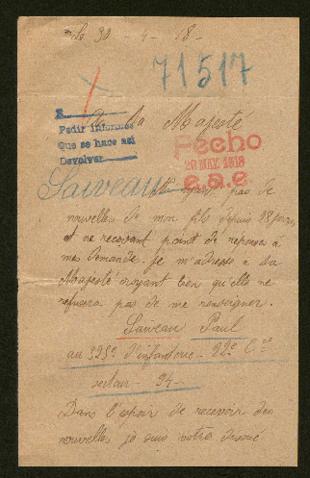 le 30 - 4 - 18 -
71517
A la Majesté
Pedir informes
Que se hace así
Devolver
Fecho
20 MAY. 1918
e.a.e
Saiveau
pas de
nouvelles de mon fils depuis 28 jours
et ne recevant point de réponse à
ma demande. Je m'adresse à Sa
Majesté croyant bien qu'elle ne
refusera pas de me renseigner.
Saiveau Paul
au 325e d'infanterie - 22e Cie
secteur - 94 -
Dans l'espoir de recevoir des
nouvelles je suis votre dévoué